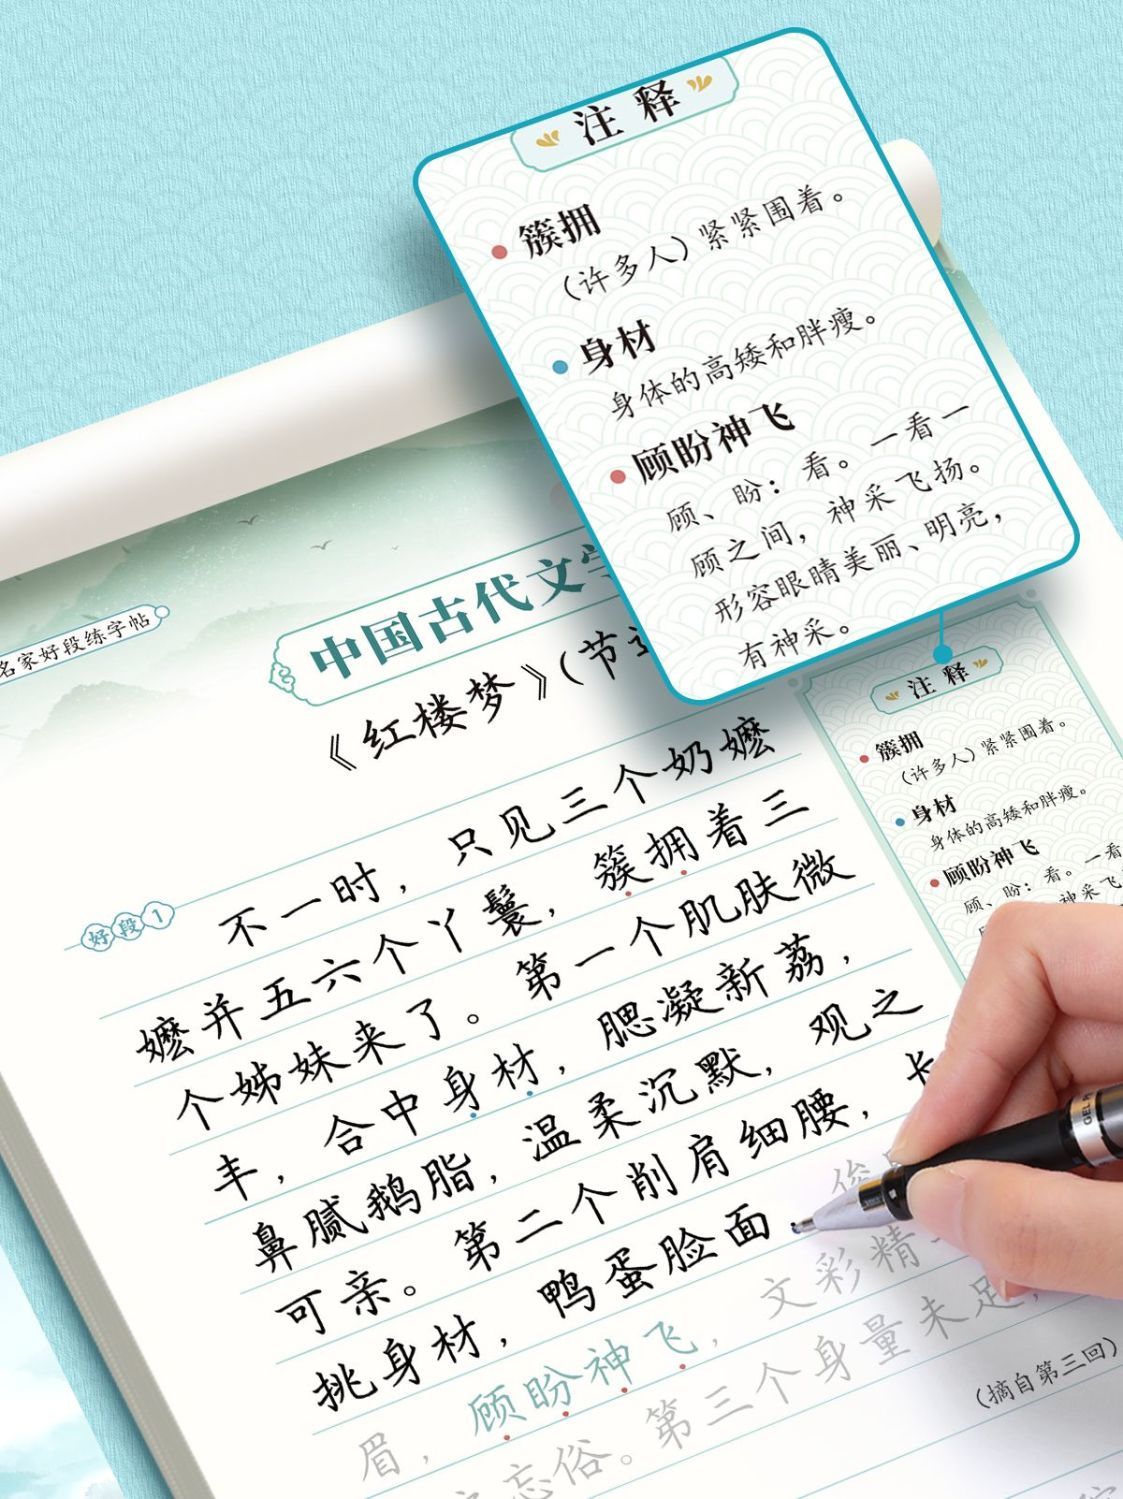 注释
簇拥
（许多人）紧紧围着。
身材
身体的高矮和胖瘦。
顾盼神飞
顾、盼：看。一看一
顾之间，神采飞扬。
形容眼睛美丽、明亮，
有神采。
名家好段练字帖
中国古代文学
《红楼梦》（节选
好段1
不一时，只见三个奶嬷
嬷并五六个丫鬟，簇拥着三
个姊妹来了。第一个肌肤微
丰，合中身材，腮凝新荔，
鼻腻鹅脂，温柔沉默，观之
可亲。第二个削肩细腰，长
挑身材，鸭蛋脸面，俊
眉，顾盼神飞，文彩精
忘俗。第三个身量未足，
（摘自第三回）
注释
簇拥
（许多人）紧紧围着。
身材
身体的高矮和胖瘦。
顾盼神飞
顾、盼：看。一看
神采飞
GEL